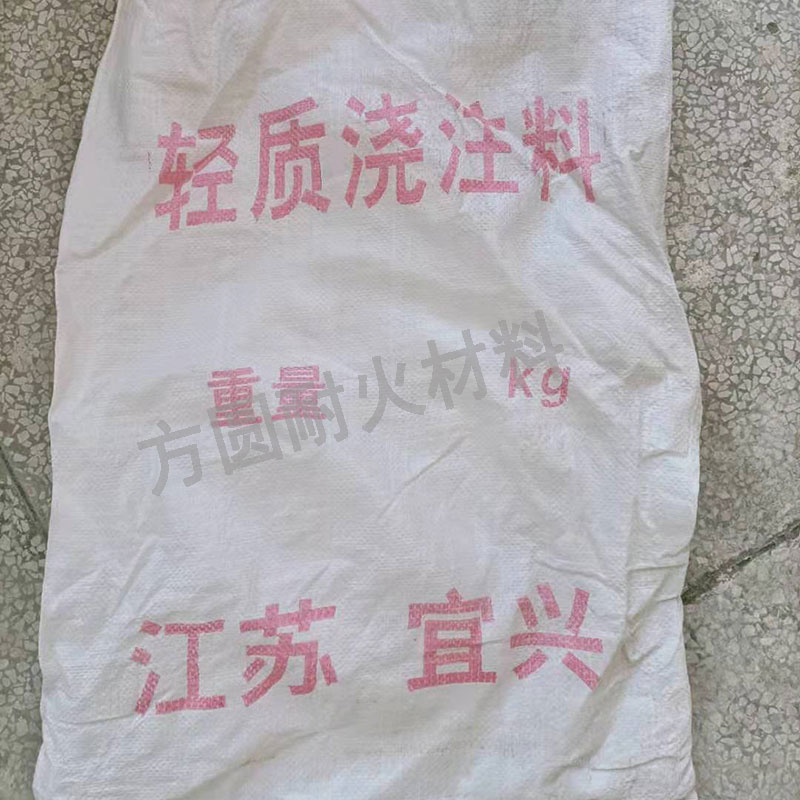 轻质浇注料
重量 kg
方圆耐火材料
江苏 宜兴